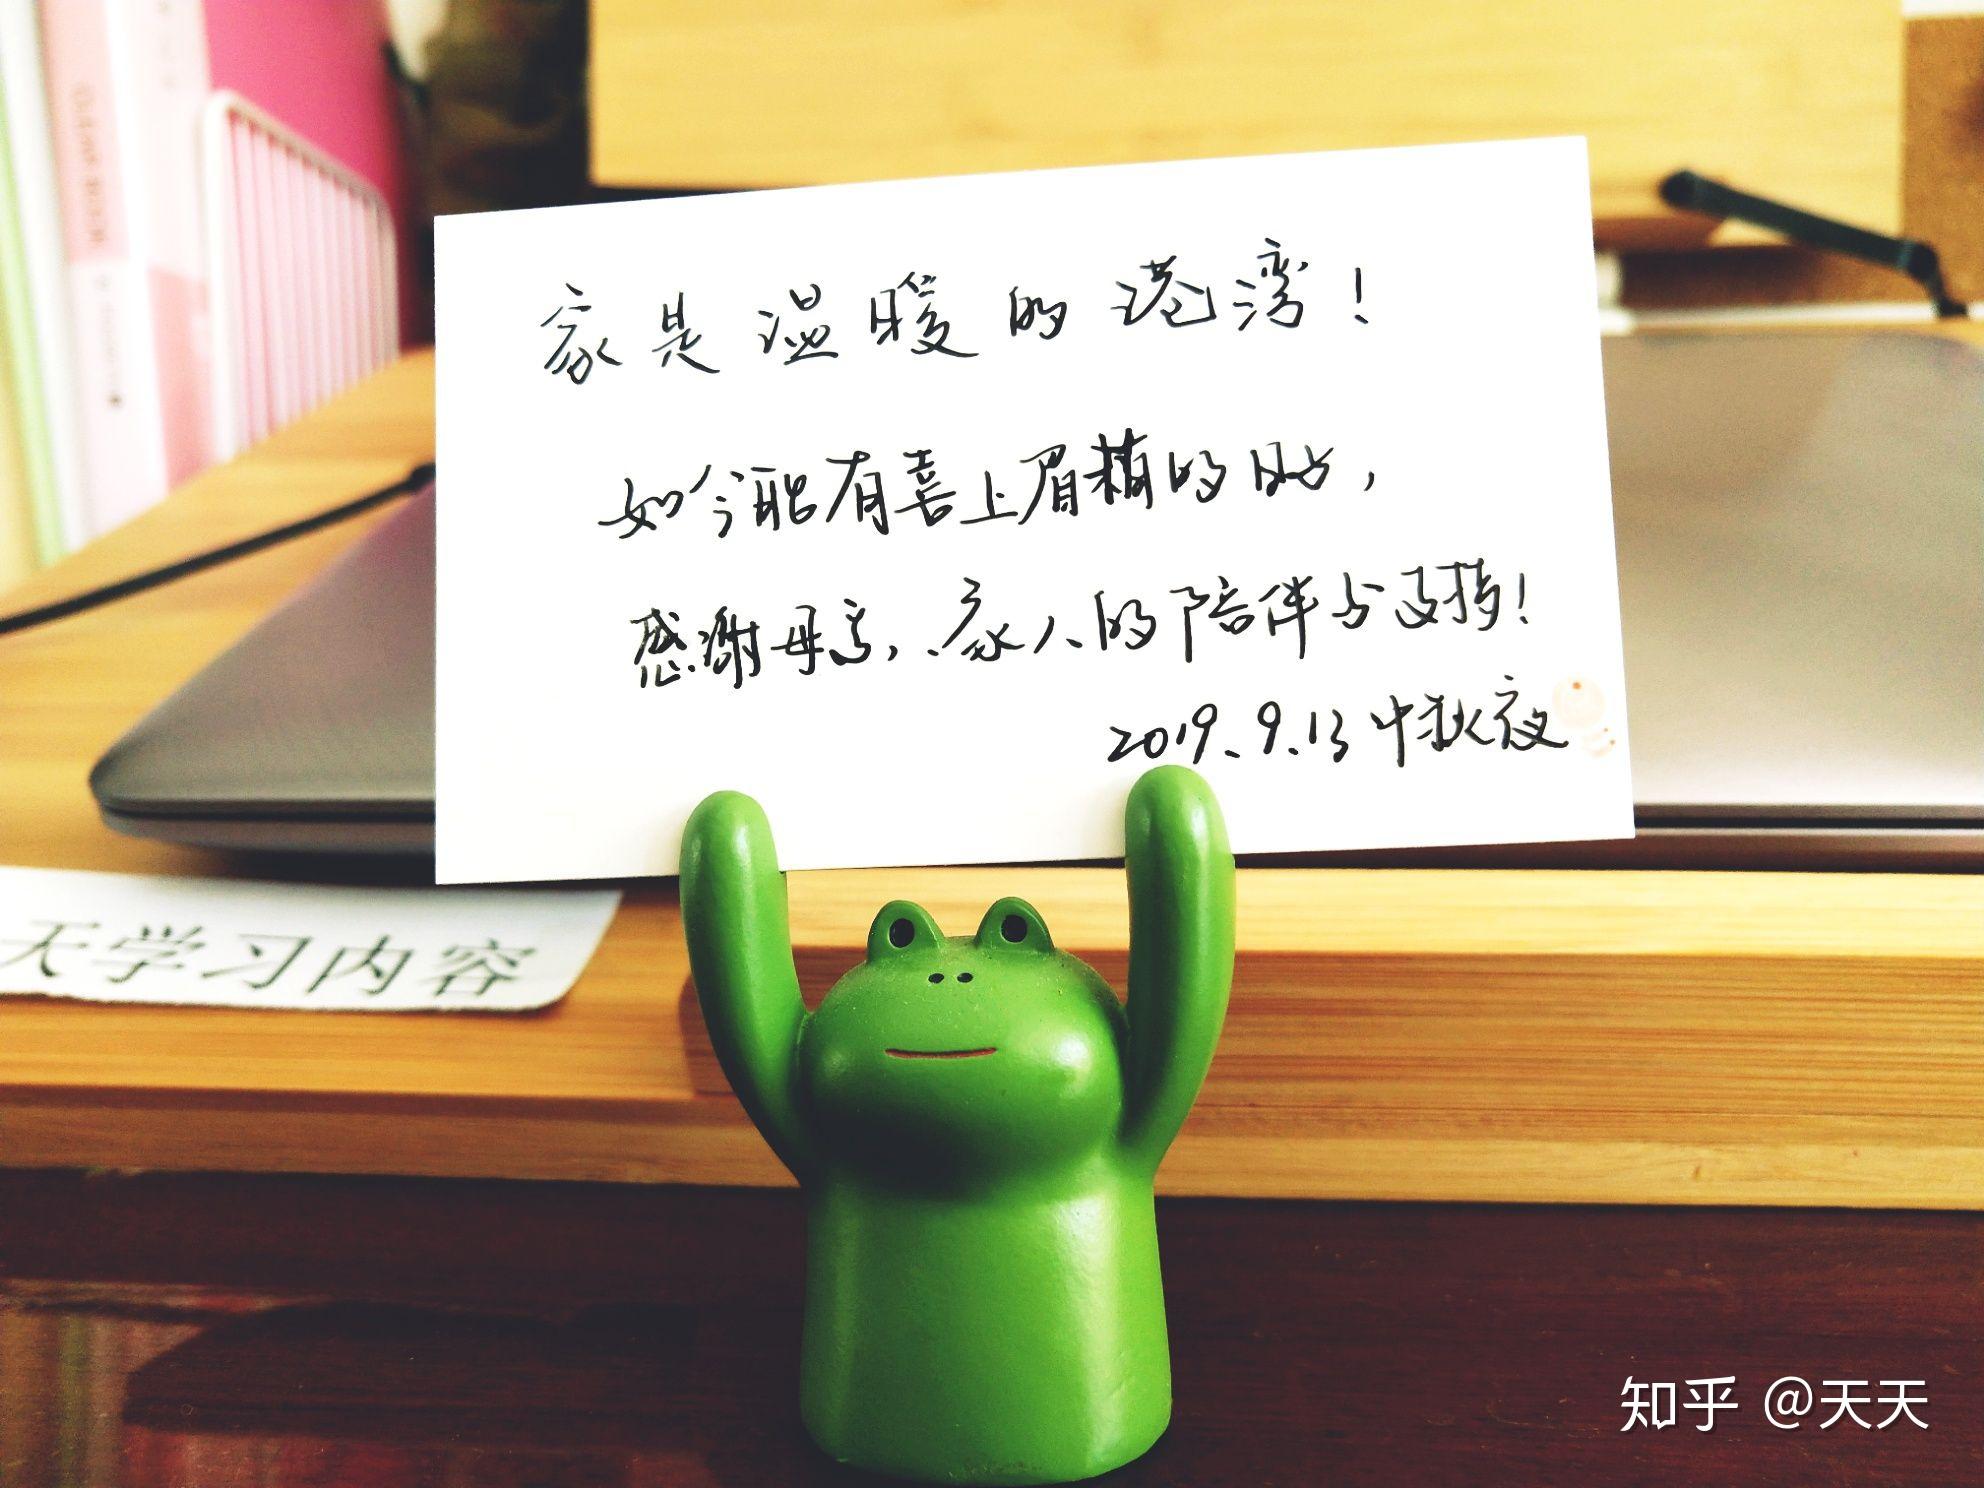 家是温暖的港湾!
如今能有喜上眉梢的时,
感谢母亲,、家人的陪伴与支持!
2019.9.13中秋夜
天学习内容
知乎 @天天